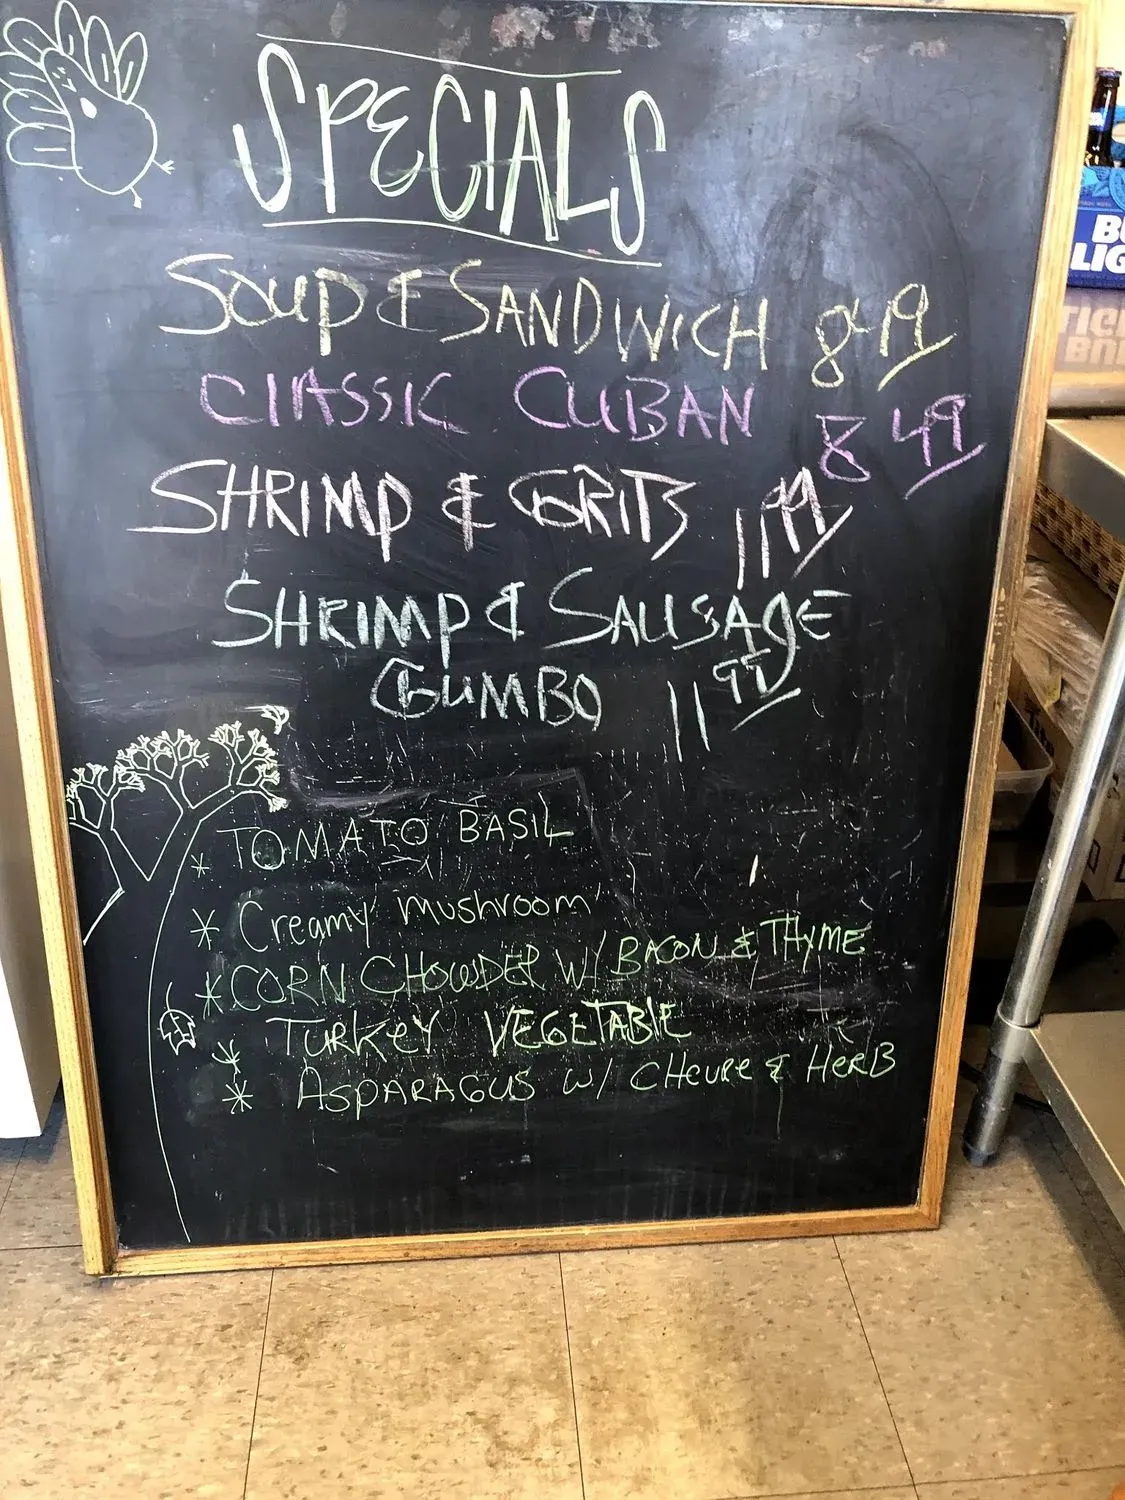 SPECIALS
SOUP & SANDWICH 8.19
CLASSIC CUBAN 8 49
SHRIMP & GRITS 11 99
SHRIMP & SAUSAGE
GUMBO 11 99
* TOMATO BASIL
* Creamy mushroom
* CORN CHOWDER W/ BACON & THYME
* TURKEY VEGETABLE
* ASPARAGUS W/ CHEVRE & HERB
BU
LIG